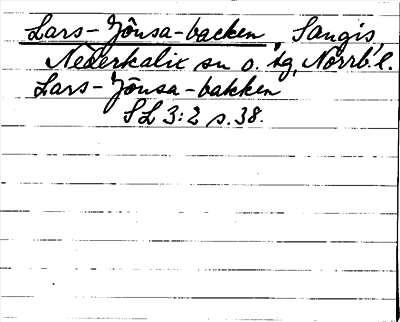 Lars-Jönsa-backen, Sangis,
Nederkalix sn o. tg, Norrb. l.
Lars-Jönsa-bakken
SL 3:2 s. 38.